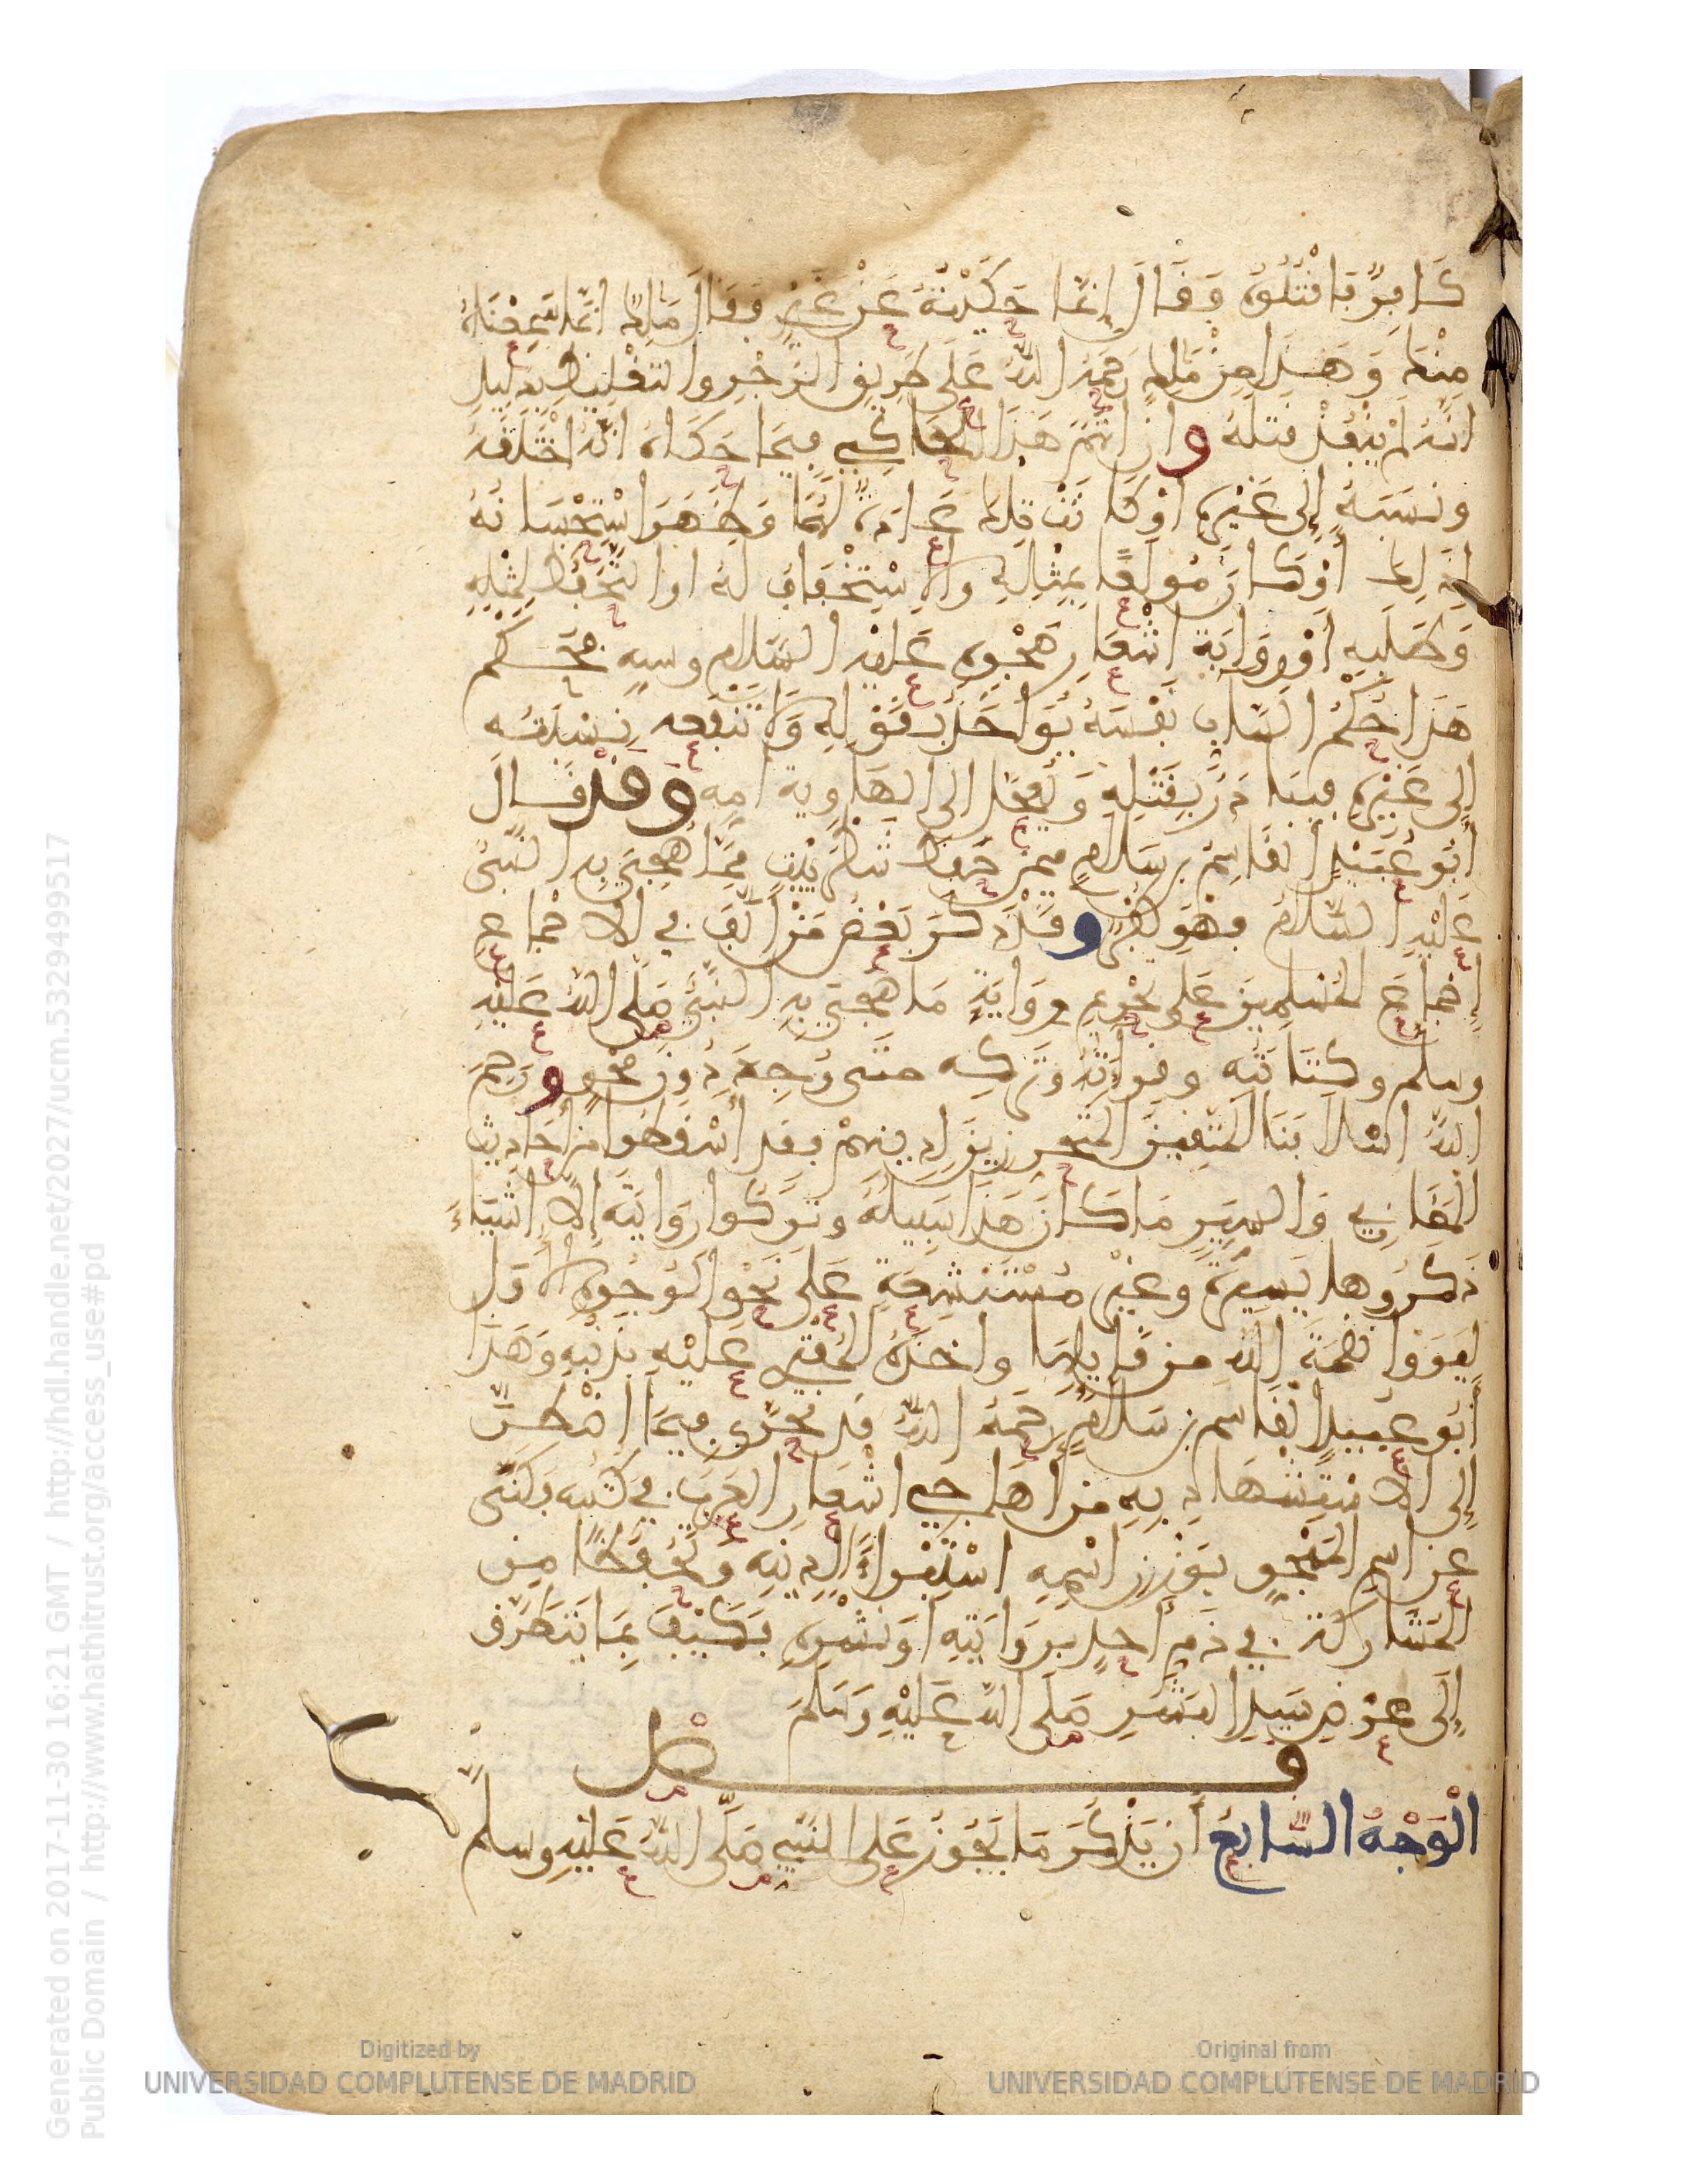 كَافِرٌ فَاقْتُلُوهُ وَقَالَ إِنَّمَا حَكَيْتُهُ عَنْ غَيْرِي فَقَالَ مَالِكٌ انَّمَا سَمِعْنَاهُ
مِنْكَ وَهَذَا مِنْ مَالِكٍ رَحِمَهُ اللَّهُ عَلَى طَرِيقِ الزَّجْرِ والتغْلِيظِ بِدَلِيلِ
انَّهُ لَمْ يُنْفِذْ قتْلَهُ وان اتُّهِمَ هَذَا الْحَاكِي فِيمَا حَكَاهُ انَّهُ اخْتَلَقَهُ
ونَسَبَهُ إِلَى غَيْرِهِ أَوْ كَانَتْ تِلكَ عَادَةً لَهُ أَوْ ظَهَرَ اسْتِحْسَانُهُ
لِذَلِكَ أَوْ كَانَ مُولَعًا بِمِثْلِهِ والِاسْتِخْفَافِ لَهُ او التَّحَفُّظِ لِمِثْلِهِ
وَطَلَبِهِ أَوْ رِوَايَةِ اشْعَارِ هَجْوِهِ عَلَيْهِ السَّلَام وسبه فحُكْم
هَذَا حُكْمُ السَّابِّ نَفْسَهُ يُوَاخَذُ بِقَوْلِهِ وَلَا تَنْفَعه نِسْبَتُه
إِلَى غَيْرِهِ فَيُبَادَرُ بِقَتْلِهِ وَيُعَجَّل إلى الهَاوِية أُمِّهِ وقَدْ قَالَ
أَبُو عُبَيْدٍ الْقَاسِمُ بن سَلَّامٍ فيمن حَفِظَ شَطْرَ بَيْتٍ مِمَّا هُجِيَ بِهِ النَّبِيُّ
عَلَيْهِ السَّلَامُ فَهُوَ كُفْرٌ وقَدْ ذَكَرَ بَعْضُ مَنْ أَلَّفَ فِي الاجْمَاعِ
إِجْمَاعَ الْمُسْلِمِينَ عَلَى تَحْرِيمِ رِوَايَةِ مَا هُجِيَ بِهِ النَّبِيُّ صَلَّى اللَّهُ عَلَيْهِ
وسلم وكتابَتِهِ وقِرَاءَتِهِ وتَرْكِهِ متى وُجِدَ دُونَ مَحْوٍ ورَحِمَ
اللَّهُ اسْلَافَنَا الْمُتَّقِينَ الْمُتَحَرِّزِينَ لِدِينِهِمْ فقد أَسْقَطُوا من أَحَادِيثِ
الْمَغَازِي وَالسِّيَرِ مَا كَانَ هَذَا سَبِيلُهُ وتَرَكُوا رِوَايَتَهُ إِلَّا اشْيَاءَ
ذَكَرُوهَا يَسِيرَةً وغَيْرَ مُسْتَبْشَعَةٍ عَلَى نَحْوِ الْوُجُوهِ الأُوَلِ
لِيُرُوا نِقْمَةَ اللَّهِ مِنْ قَايِلِهَا واخْذَهُ الْمُفْتَرِي عَلَيْهِ بِذَنْبِهِ وَهَذَا
أَبُو عُبَيْدٍ الْقَاسِم بن سَلَّامٍ رَحِمَهُ اللَّهُ قَدْ تَحَرَّى فِيمَا اضْطُرَّ
إِلَى الاسْتِشْهَادِ بِهِ من أَهَاجِي اشْعَارِ الْعَرَبِ فِي كُتُبِهِ فَكَنَّى
عَنِ اسْمِ الْمَهْجُوِّ بِوَزْنِ اسْمِهِ اسْتِبْرَاءً لِدِينِهِ وَتَحَفُّظًا مِن
الْمُشَارَكَةِ فِي ذَمِّ أَحَدٍ بِرِوَايَتِهِ أَوْ نَشْرِهِ فَكَيْفَ بِمَا يَتَطَرَّق
إِلَى عِرْضِ سَيِّدِ الْبَشَرِ صَلَّى اللَّهُ عَلَيْهِ وَسَلَّمَ
فصل
الْوَجْهُ السَّابِعُ أَن يَذْكُرَ مَا يَجُوزُ عَلَى النَّبِيِّ صَلَّى اللَّهُ عَلَيْهِ وسلم
Generated on 2017-11-30 16:21 GMT / http://hdl.handle.net/2027/ucm.5329499517
Public Domain / http://www.hathitrust.org/access_use#pd
Digitized by
UNIVERSIDAD COMPLUTENSE DE MADRID
Original from
UNIVERSIDAD COMPLUTENSE DE MADRID